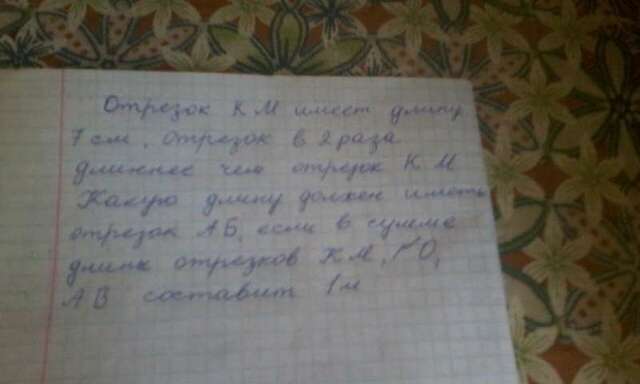 Отрезок КМ имеет длину
7 см, отрезок в 2 раза
длиннее чем отрезок КМ
Какую длину должен иметь
отрезок АБ, если в сумме
длины отрезков КМ,
АВ составит 1 м